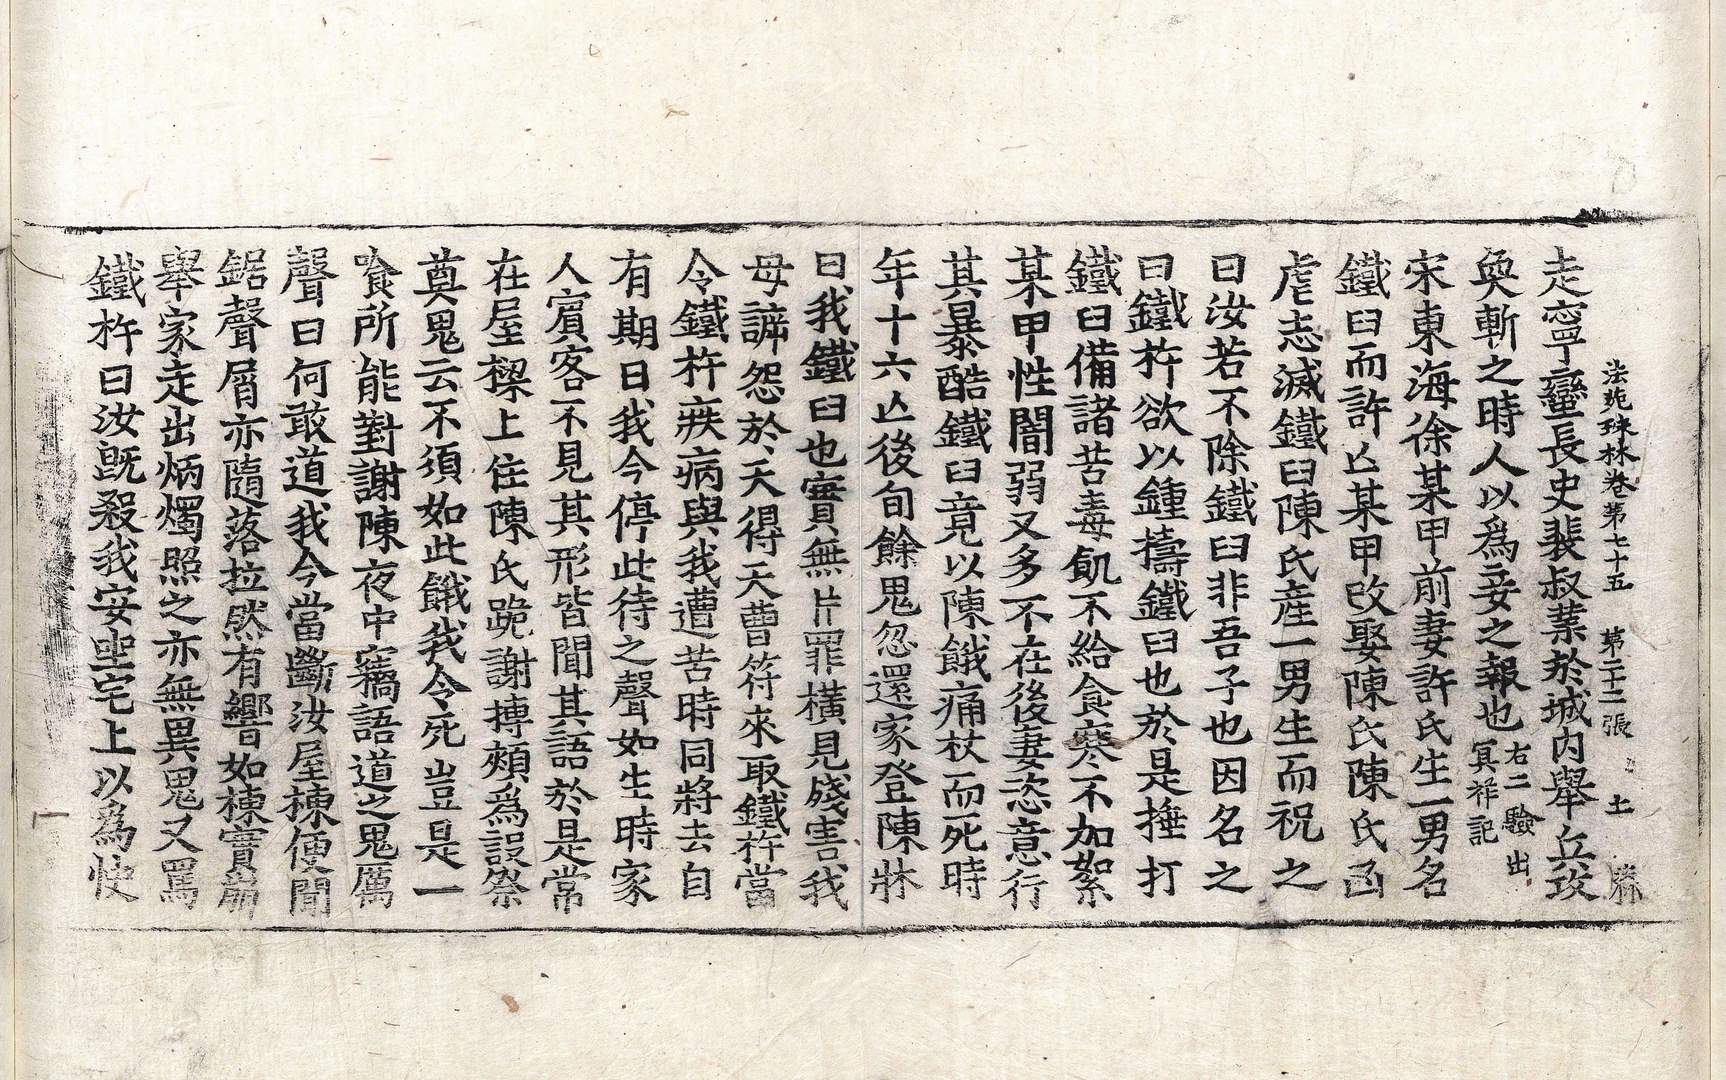 法苑珠林卷第七十五　第二十二張　土
走寧蠻長史裴叔業於城内舉兵攻
奐斬之時人以為妾之報也右二驗出冥祥記
宋東海徐某甲前妻許氏生一男名
鐵臼而許亡某甲改娶陳氏陳氏凶
虐志滅鐵臼陳氏產一男生而祝之
曰汝若不除鐵臼非吾子也因名之
曰鐵杵欲以鍾擣鐵臼也於是捶打
鐵臼備諸苦毒飢不給食寒不加絮
某甲性闇弱又多不在後妻恣意行
其暴酷鐵臼竟以陳餓痛杖而死時
年十六亡後旬餘鬼忽還家登陳牀
曰我鐵臼也實無片罪橫見殘害我
母訴怨於天得天曹符來取鐵杵當
令鐵杵疾病與我遭苦時同將去自
有期日我今停此待之聲如生時家
人賓客不見其形皆聞其語於是常
在屋樑上住陳氏跪謝搏頰為設祭
奠鬼云不須如此餓我令死豈是一
飡所能對謝陳夜中竊語道之鬼厲
聲曰何敢道我今當斷汝屋棟便聞
鋸聲屑亦隨落拉然有響如棟實崩
舉家走出炳燭照之亦無異鬼又罵
鐵杵曰汝旣殺我安坐宅上以為快